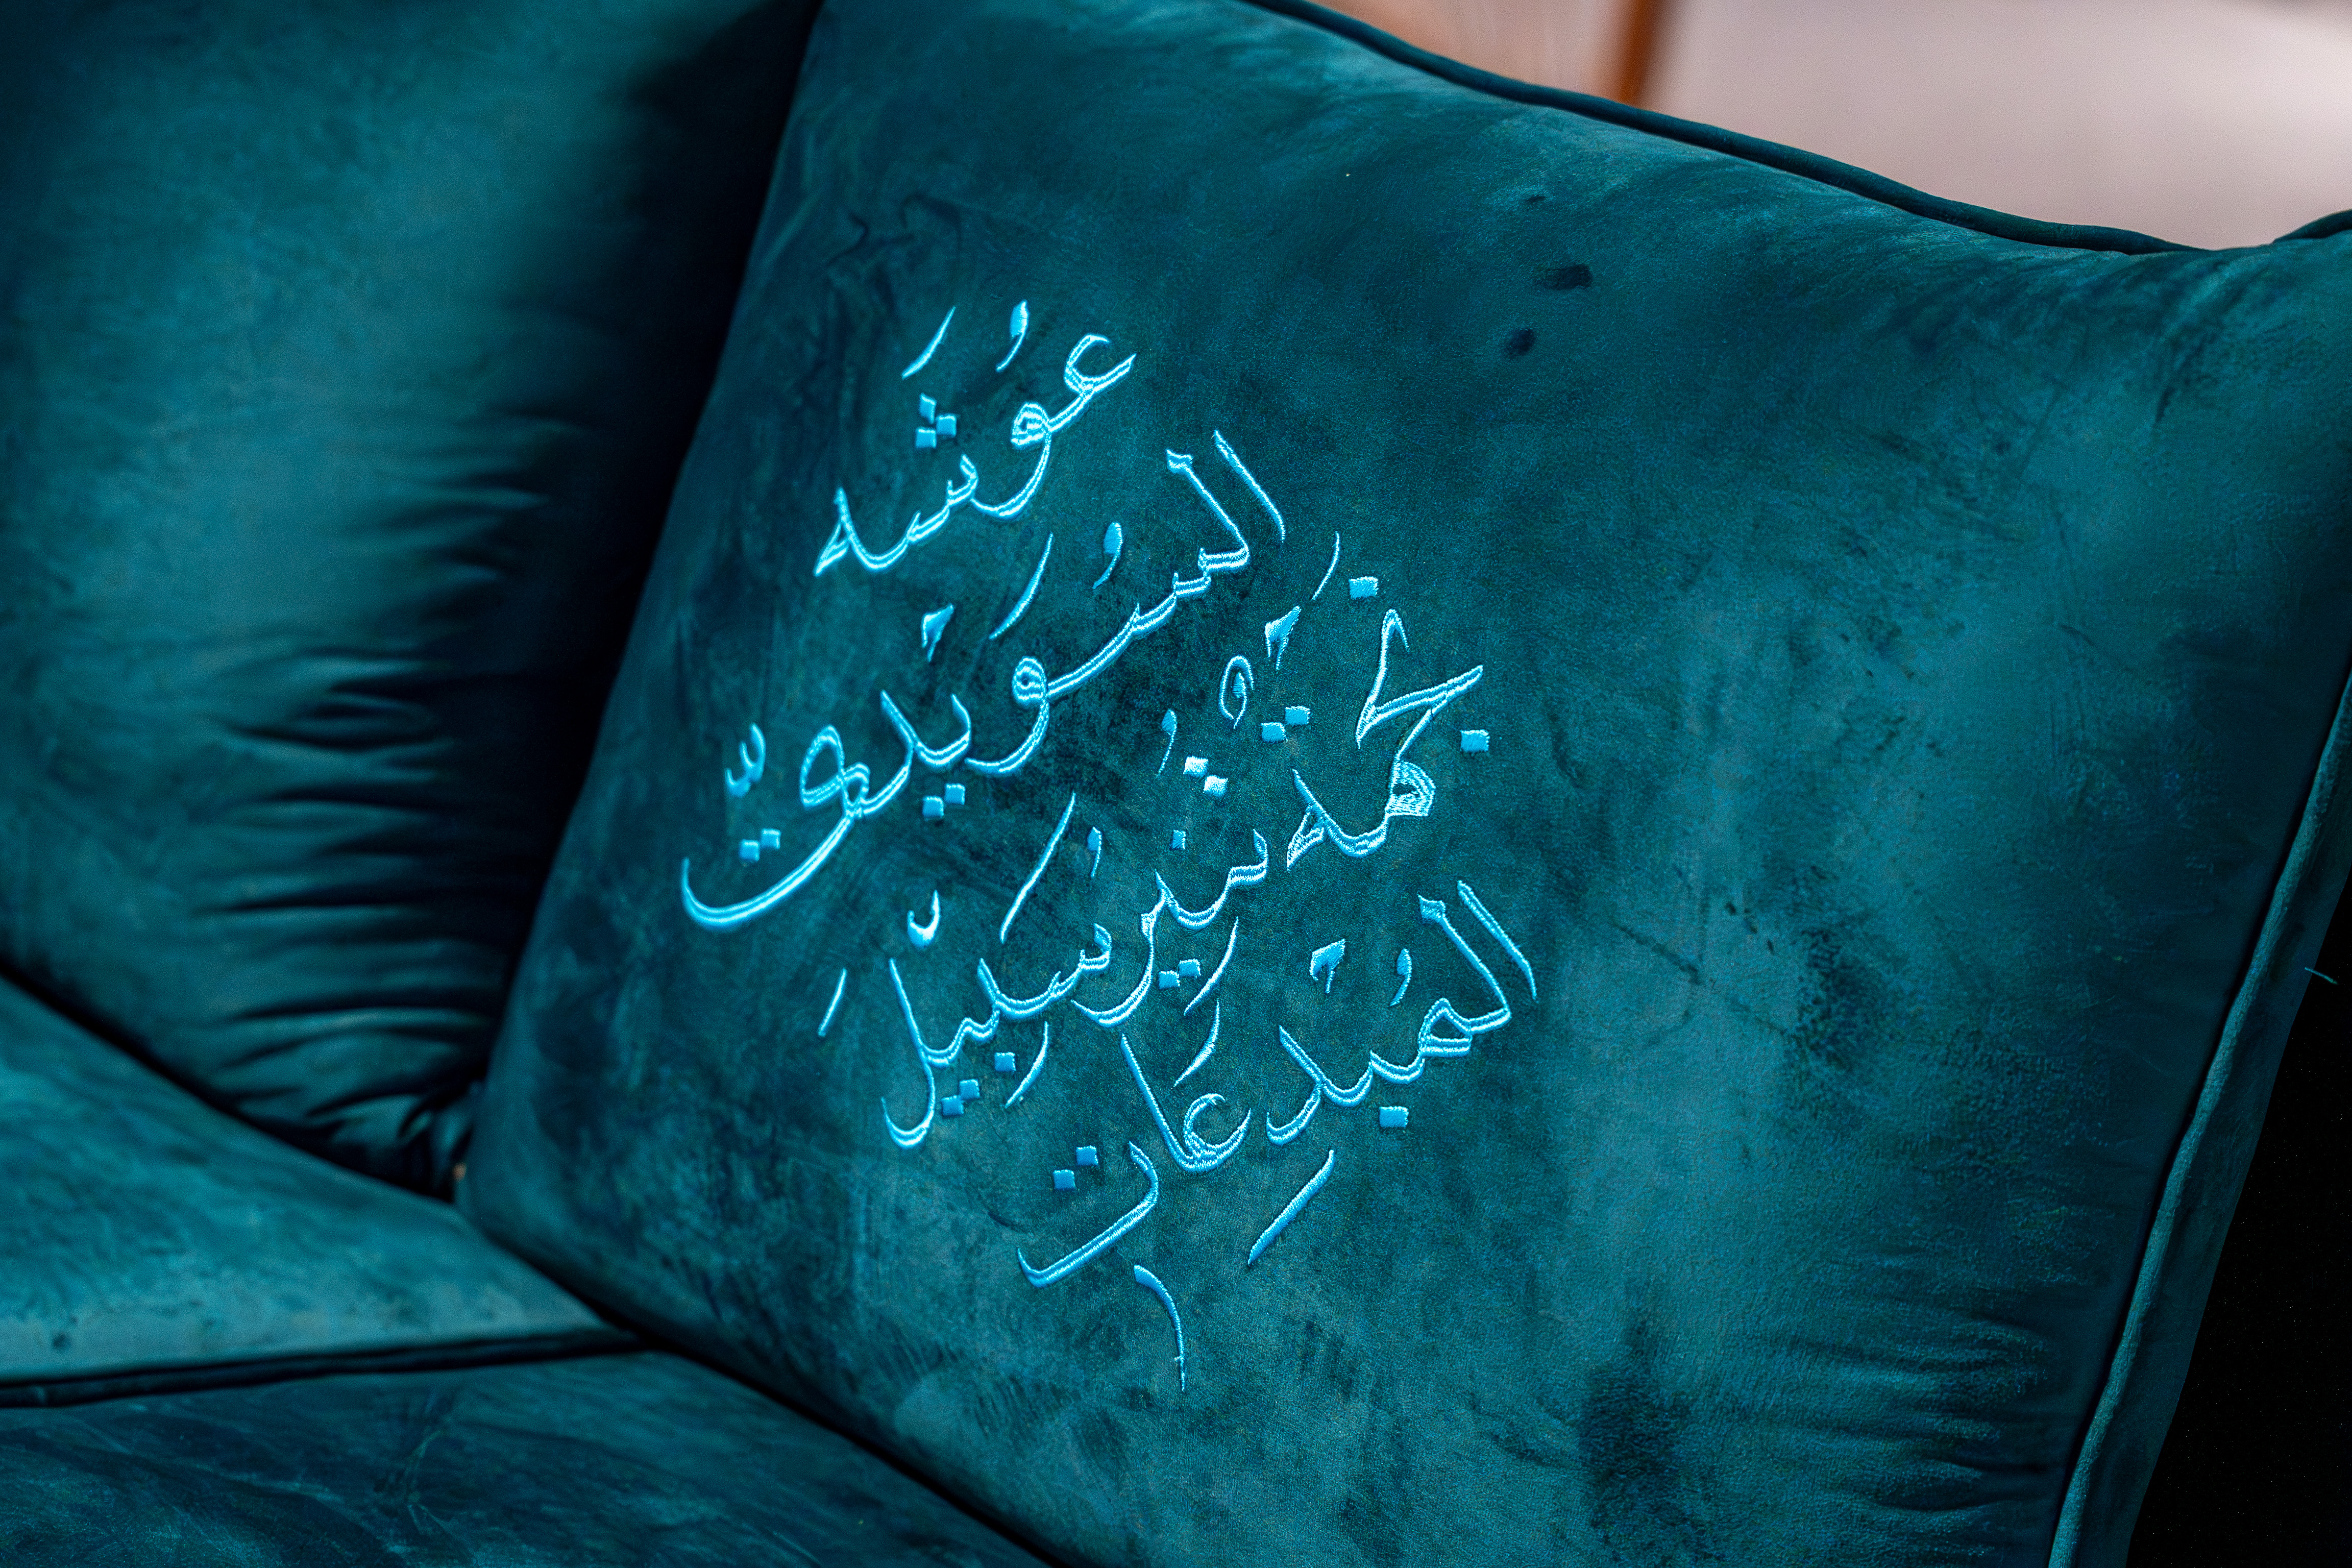 عُوشَه
السُوَيْديّ
نَجْمَةٌ تُنيرُ سَبِيْلَ
المُبْدِعَات